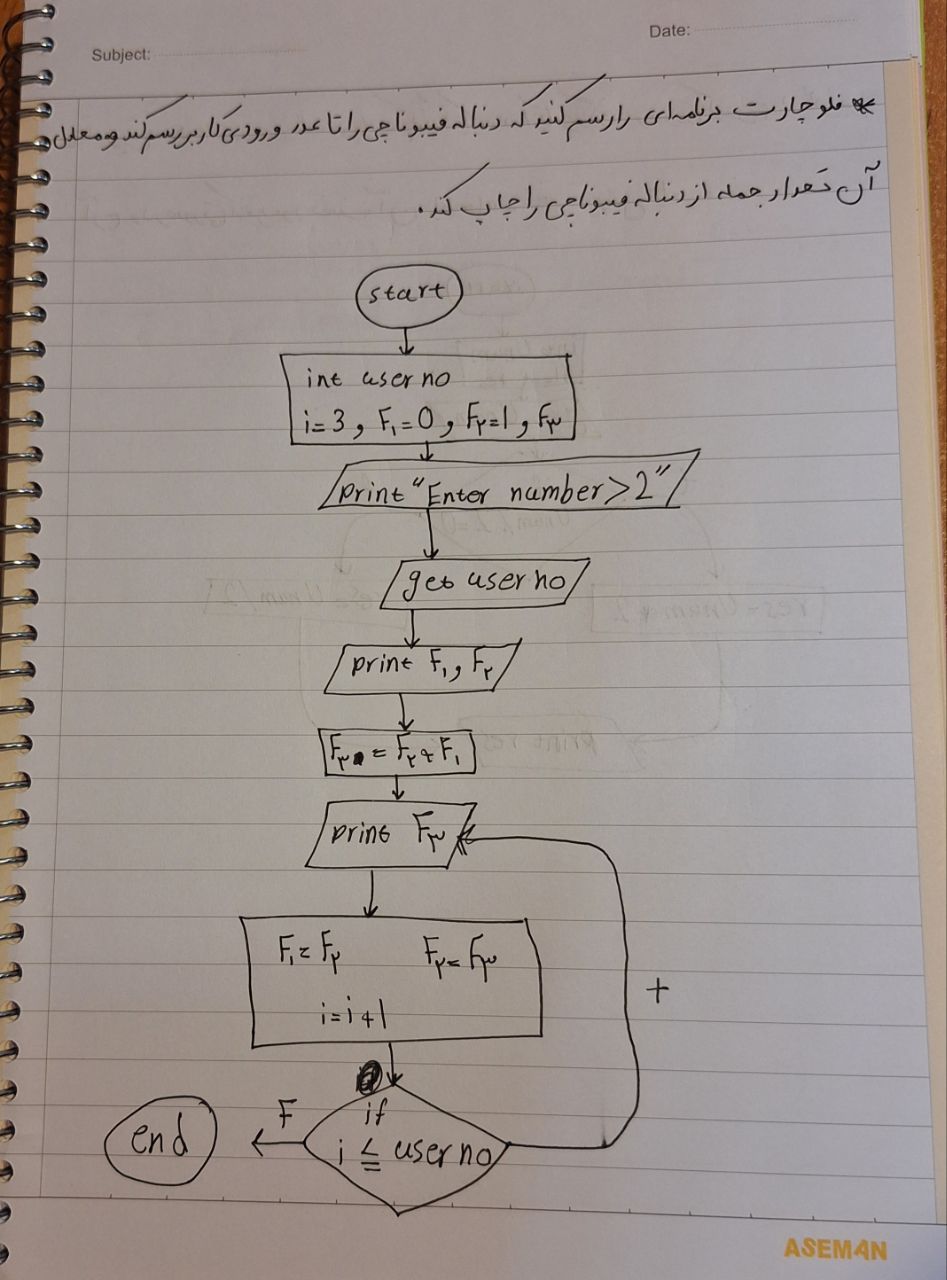 Date:
Subject:
* فلوچارت برنامه‌ای را رسم کنید که دنباله فیبوناچی را تا عدد ورودی کاربر رسم کند و معادل
آن تعداد جمله از دنباله فیبوناچی را چاپ کند.
start
int userno
i=3 , F۱=0 , F۲=1 , F۳
print "Enter number>2"
get userno
print F۱ , F۲
F۳ = F۲+F۱
print F۳
F۱=F۲ F۲=F۳
i=i+1
+
if
F
i ≤ userno
end
ASEMAN